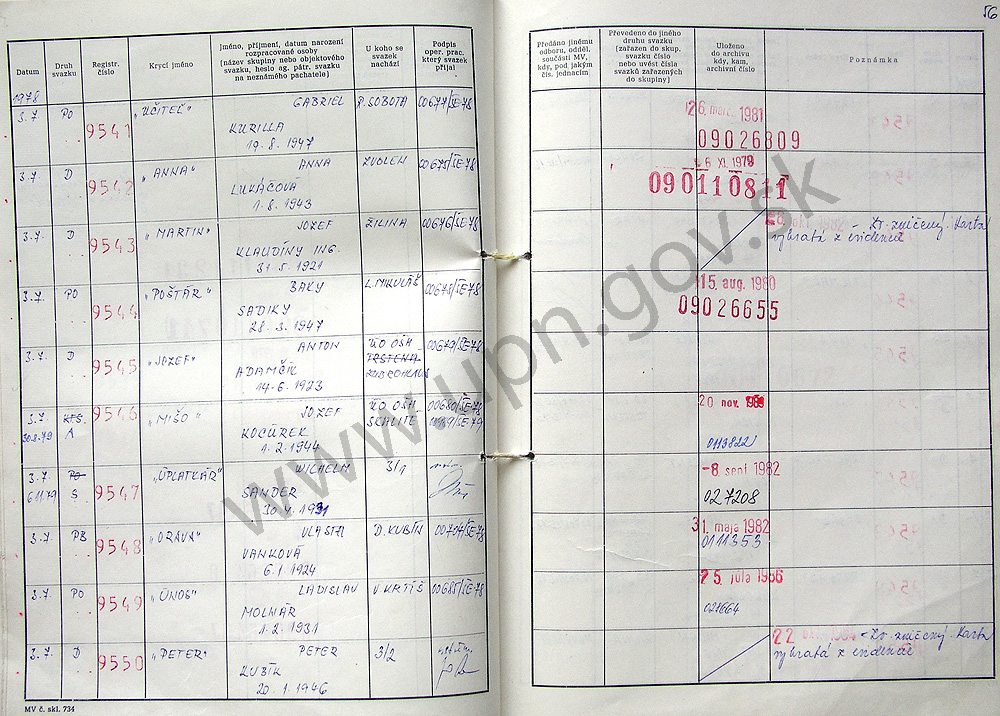 56
Datum
Druh svazku
Registr. číslo
Krycí jméno
Jméno, příjmení, datum narození rozpracované osoby (název skupiny nebo objektového svazku, heslo ag. pátr. svazku na neznámého pachatele)
U koho se svazek nachází
Podpis oper. prac. který svazek přijal
Předáno jinému odboru, odděl. součásti MV, kdy, pod jakým čís. jednacím
Převedeno do jiného druhu svazku (zařazen do skup. svazku číslo nebo uvést čísla svazků zařazených do skupiny)
Uloženo do archivu kdy, kam, archivní číslo
Poznámka
1978
3.7 PO 9541 "UČITEĽ" GABRIEL R. SOBOTA 00677/SE-78 26. marc. 1981
KURILLA 09026809
19. 8. 1947
3.7. D 9542 "ANNA" ANNA ZVOLEN 00675/SE-78 6 XI. 1979
LUKÁČOVA 090110811
1. 8. 1943
3.7. D 9543 "MARTIN" JOZEF ŽILINA 00676/SE-78 - Zv. zničený. Karta
KLAUDÍNY ING. vybratá z evidencie
31. 5. 1921
3.7. PO 9544 "POŠTÁR" BAKY L. MIKULÁŠ 00678/SE-78 15. aug. 1980
SADIKY 09026655
28. 3. 1947
3.7. D 9545 "JOZEF" ANTON ÚO OŠK
ADAMČÍK TRSTENÁ
14. 6. 1923
3.7. 9546 "MIŠO" JOZEF ÚO OŠK 00680/SE-78 20 nov.
30.8.79 A KOCÚREK SKALITÉ
1. 2. 1944 0113822
3.7. PO 9547 "ÚPLATKÁR" WILHELM 3/1 -8 sept 1982
6.11.79 S SANDER 027208
3.7. PB 9548 "ORAVA" VLASTA D. KUBÍN 00704/SE-78 31. maja 1982
VANKOVÁ 0111353
6. 1. 1924
3.7. PO 9549 "ÚNOS" LADISLAV V. KRTÍŠ 00685/SE-78 25 júla 1986
MOLNÁR 021664
1. 2. 1931
3.7. D 9550 "PETER" PETER 3/2 22 - Zv. zničený. Karta
KUBÍK vybratá z evidencie
20. 1. 1946
MV č. skl. 734
www.upn.gov.sk